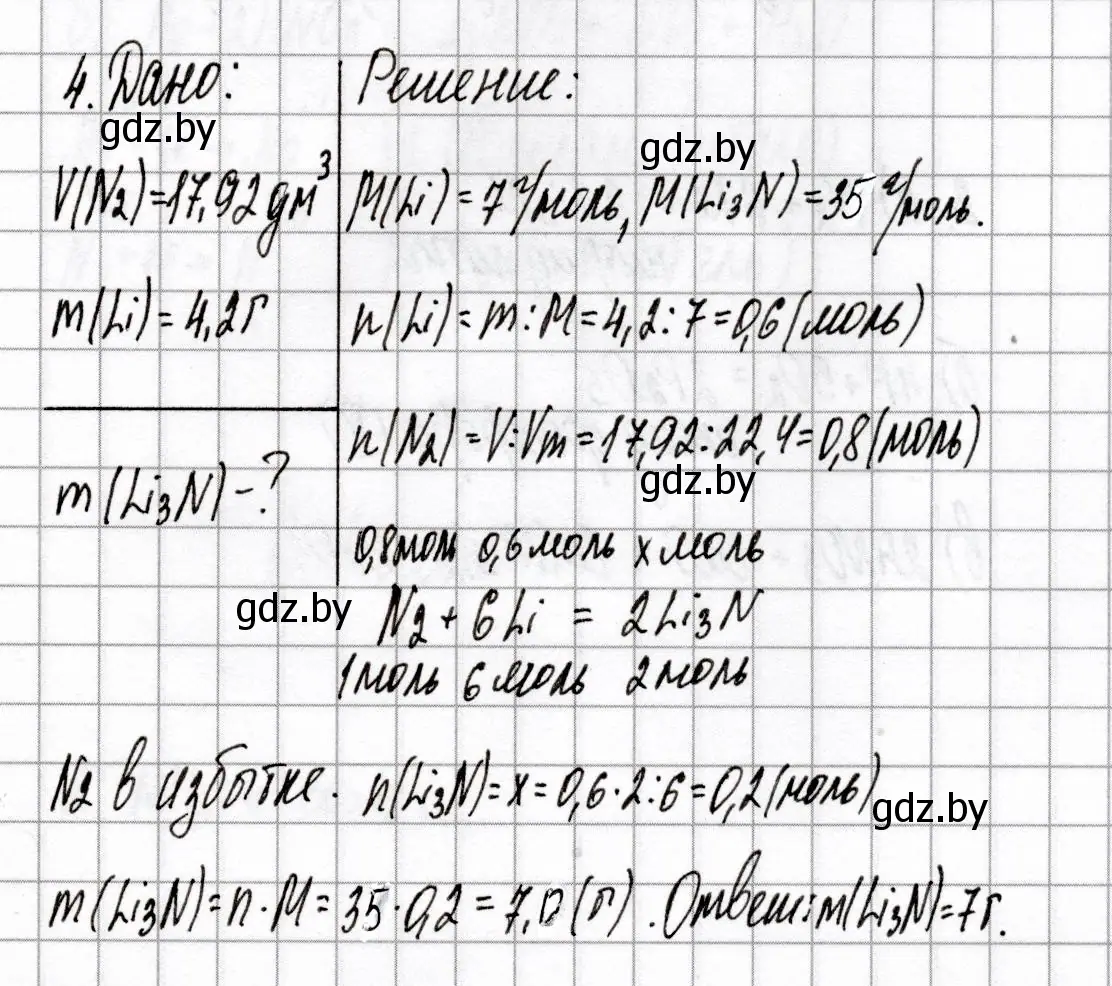 4. Дано:
gdz.by
V(N₂)=17,92 дм³
m(Li)=4,2г
m(Li₃N)-?
Решение:
gdz.by
M(Li)=7 г/моль, M(Li₃N)=35 г/моль.
n(Li)=m:M=4,2:7=0,6(моль)
n(N₂)=V:Vm=17,92:22,4=0,8(моль)
gdz.by
0,8моль 0,6моль x моль
gdz.by
N₂+6Li = 2Li₃N
1моль 6моль 2моль
N₂ в избытке. n(Li₃N)=x=0,6·2:6=0,2(моль)
gdz.by
m(Li₃N)=n·M=35·0,2=7,0(г). Ответ: m(Li₃N)=7г.